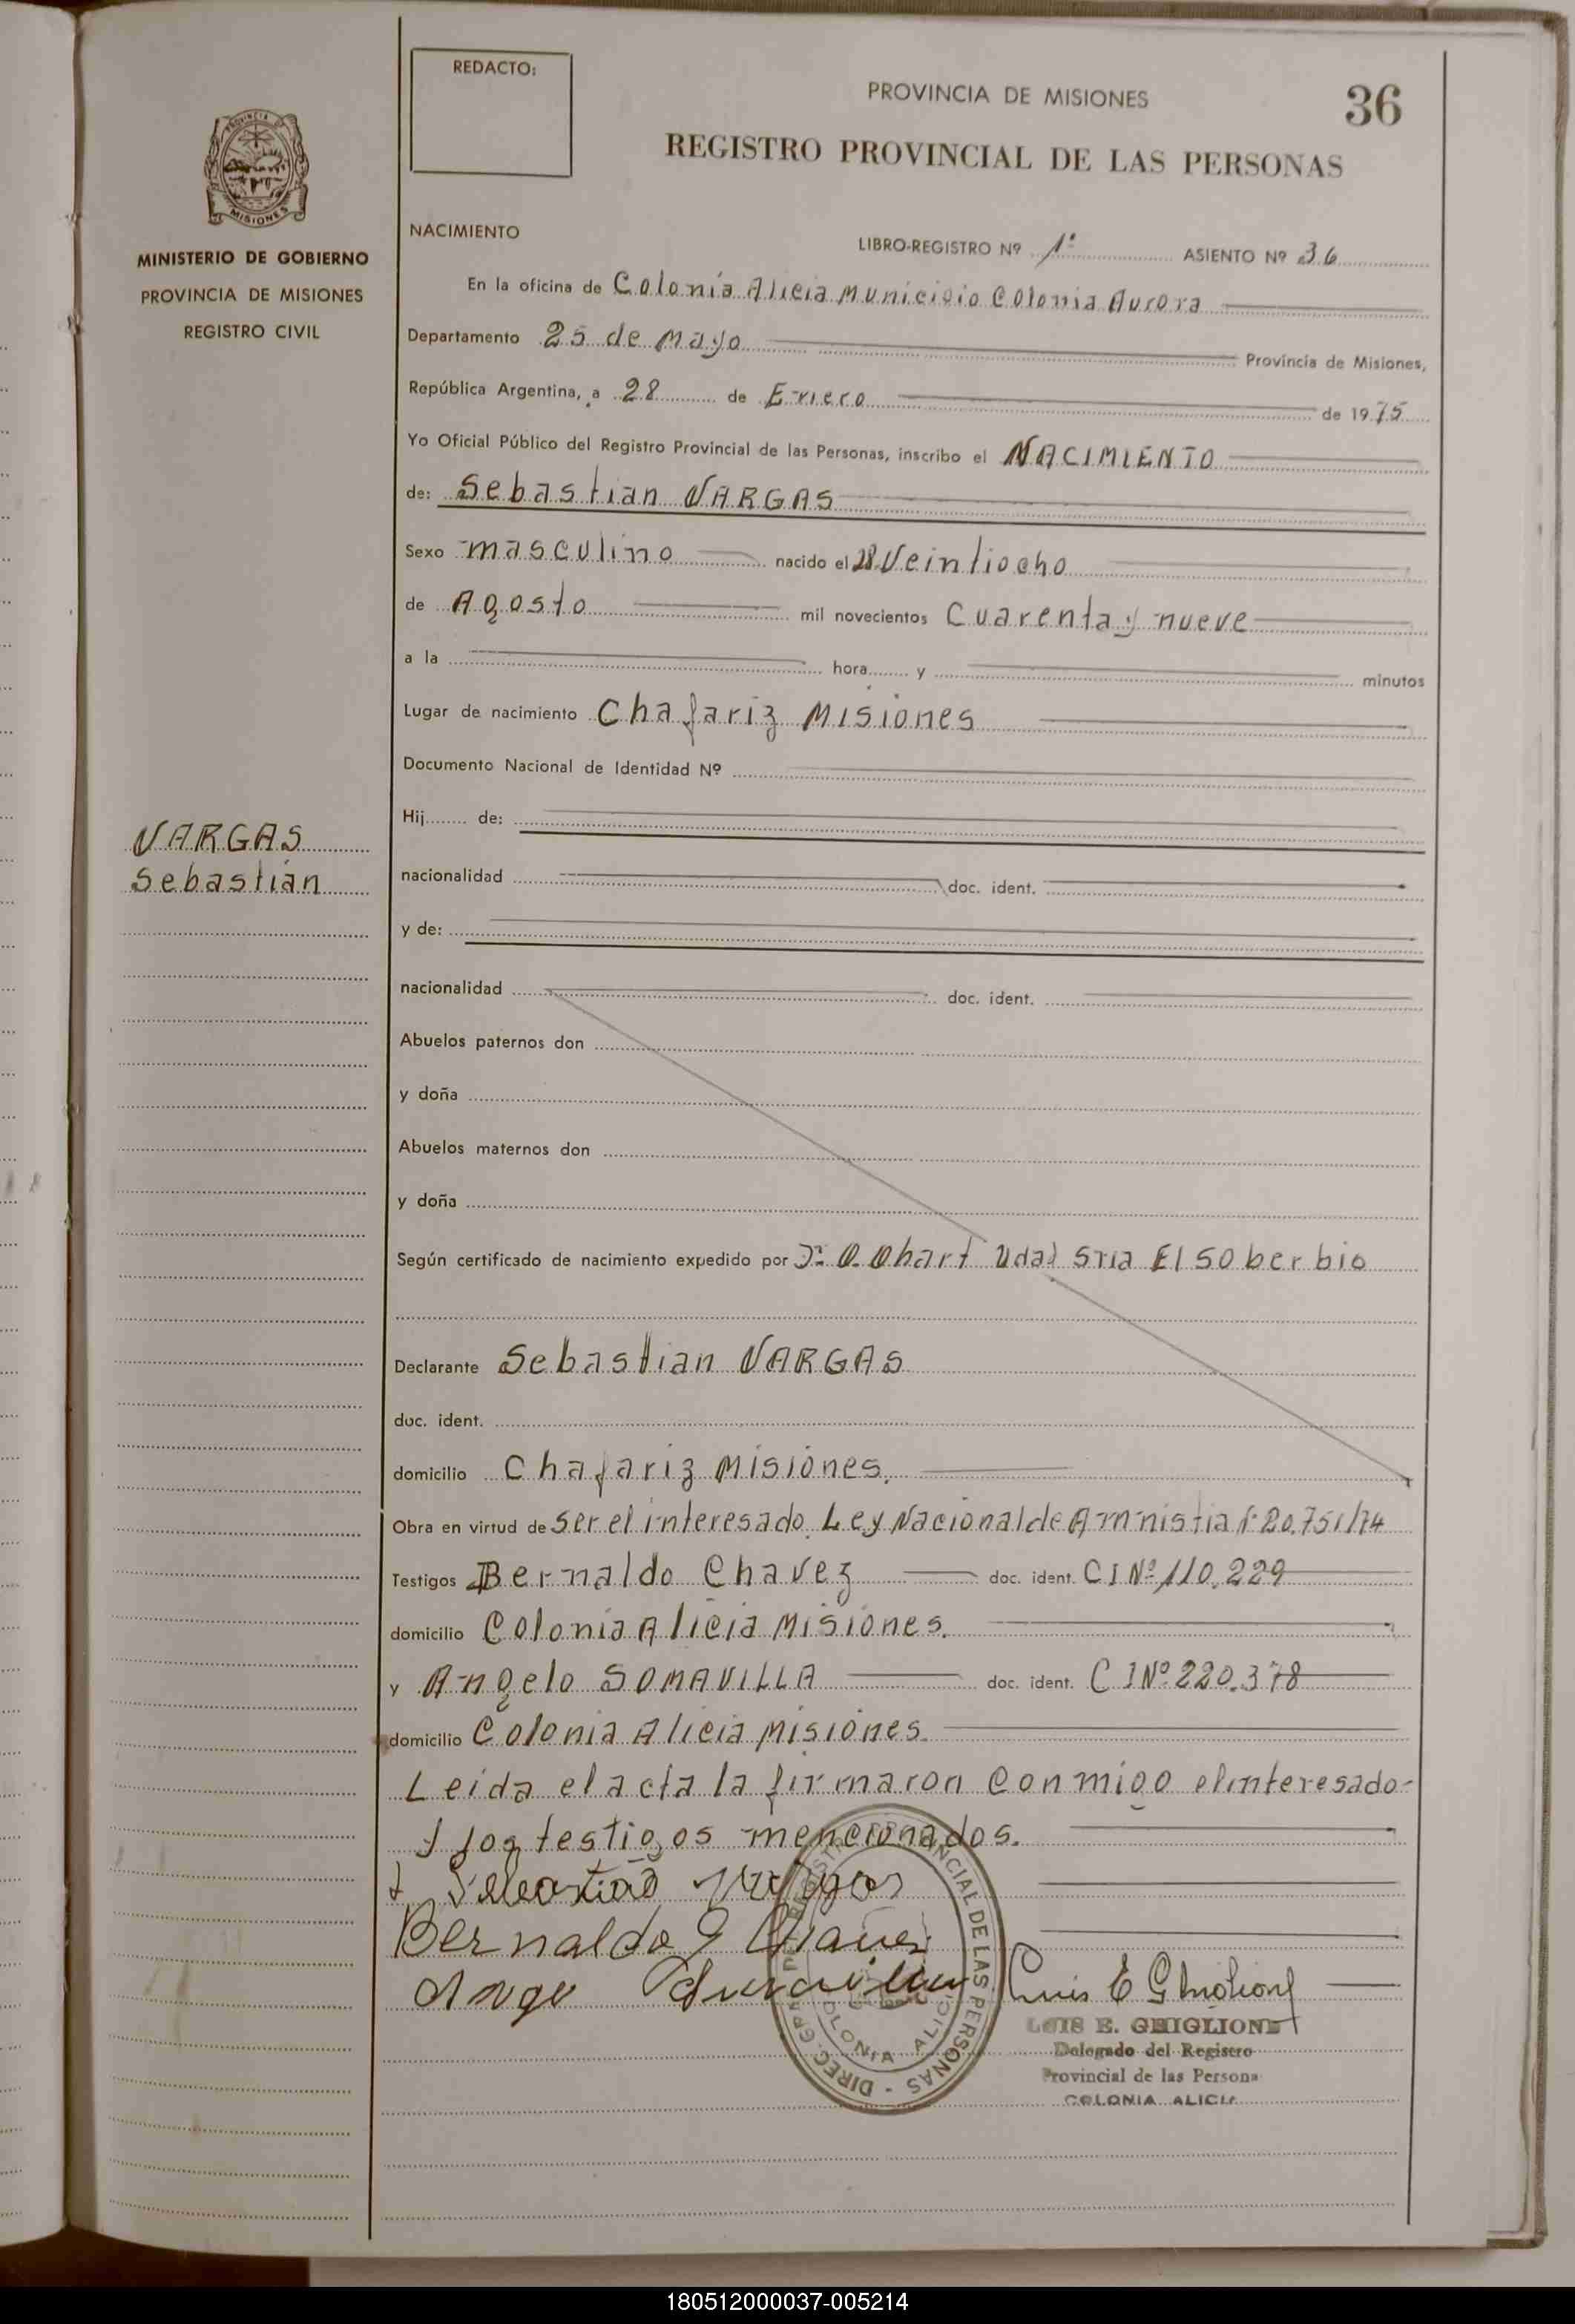 REDACTO:
PROVINCIA DE MISIONES
36
REGISTRO PROVINCIAL DE LAS PERSONAS
MISIONES
MINISTERIO DE GOBIERNO
PROVINCIA DE MISIONES
REGISTRO CIVIL
VARGAS
Sebastián
NACIMIENTO
LIBRO-REGISTRO Nº 1º ASIENTO Nº 36
En la oficina de Colonia Alicia Municipio Colonia Aurora
Departamento 25 de Mayo Provincia de Misiones,
República Argentina, a 28 de Enero de 1975
Yo Oficial Público del Registro Provincial de las Personas, inscribo el NACIMIENTO
de: Sebastian VARGAS
Sexo masculino nacido el 28 Veintiocho
de Agosto mil novecientos Cuarenta y nueve
a la hora y minutos
Lugar de nacimiento Chafariz Misiones
Documento Nacional de Identidad Nº
Hij de:
nacionalidad doc. ident.
y de:
nacionalidad doc. ident.
Abuelos paternos don
y doña
Abuelos maternos don
y doña
Según certificado de nacimiento expedido por El Soberbio
Declarante Sebastian VARGAS
doc. ident.
domicilio Chafariz Misiones.
Obra en virtud de ser el interesado. Ley Nacional de Amnistia 20.751/74
Testigos Bernaldo Chavez doc. ident. CI Nº 110.229
domicilio Colonia Alicia Misiones.
y Angelo SOMAVILLA doc. ident. CI Nº 220.378
domicilio Colonia Alicia Misiones.
Leida el acta la firmaron conmigo el interesado
y los testigos mencionados.
Bernaldo
Luis E Ghiglione
LUIS E. GHIGLIONE
Delegado del Registro
Provincial de las Persona
COLONIA ALICIA
180512000037-005214